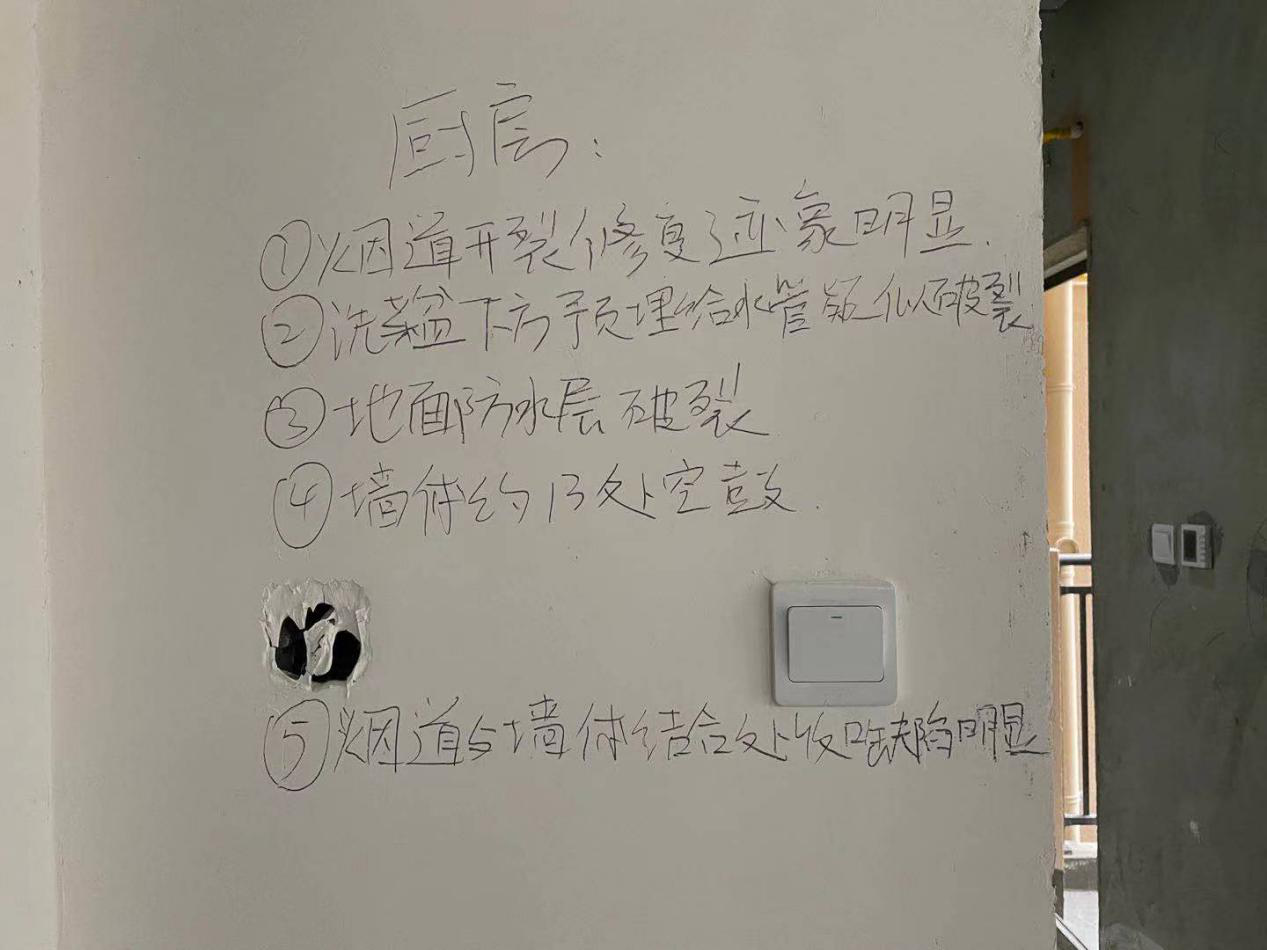 厨房:
①烟道开裂修复迹象明显.
②洗菜盆下方预埋给水管疑似破裂
③地面防水层破裂
④墙体约13处空鼓.
⑤烟道与墙体结合处收口缺陷明显